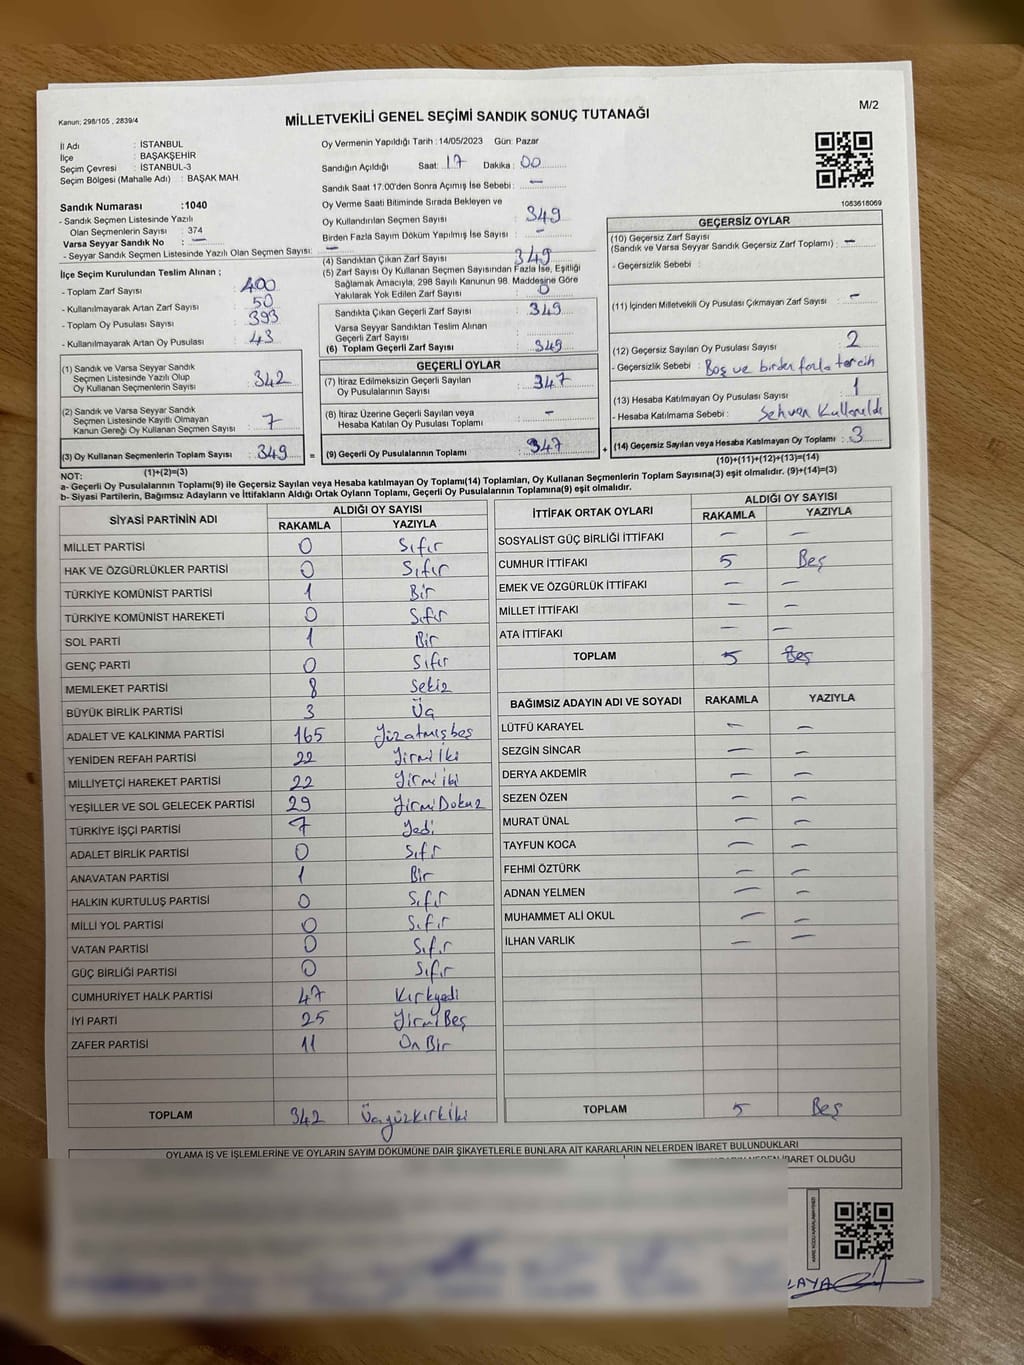 M/2
Kanun; 298/105 , 2839/4
MİLLETVEKİLİ GENEL SEÇİMİ SANDIK SONUÇ TUTANAĞI
İl Adı : İSTANBUL
İlçe : BAŞAKŞEHİR
Seçim Çevresi : İSTANBUL-3
Seçim Bölgesi (Mahalle Adı) : BAŞAK MAH.
Sandık Numarası :1040
- Sandık Seçmen Listesinde Yazılı
Olan Seçmenlerin Sayısı : 374
Varsa Seyyar Sandık No : —
- Seyyar Sandık Seçmen Listesinde Yazılı Olan Seçmen Sayısı: —
İlçe Seçim Kurulundan Teslim Alınan ;
- Toplam Zarf Sayısı : 400
- Kullanılmayarak Artan Zarf Sayısı : 50
- Toplam Oy Pusulası Sayısı : 393
- Kullanılmayarak Artan Oy Pusulası : 43
(1) Sandık ve Varsa Seyyar Sandık
Seçmen Listesinde Yazılı Olup
Oy Kullanan Seçmenlerin Sayısı : 342
(2) Sandık ve Varsa Seyyar Sandık
Seçmen Listesinde Kayıtlı Olmayan
Kanun Gereği Oy Kullanan Seçmen Sayısı : 7
(3) Oy Kullanan Seçmenlerin Toplam Sayısı : 349 =
(1)+(2)=(3)
Oy Vermenin Yapıldığı Tarih : 14/05/2023 Gün: Pazar
Sandığın Açıldığı Saat: 17 Dakika : 00
Sandık Saat 17.00'den Sonra Açımış İse Sebebi : —
Oy Verme Saati Bitiminde Sırada Bekleyen ve
Oy Kullandırılan Seçmen Sayısı : 349
Birden Fazla Sayım Döküm Yapılmış İse Sayısı : —
(4) Sandıktan Çıkan Zarf Sayısı : 349
(5) Zarf Sayısı Oy Kullanan Seçmen Sayısından Fazla İse, Eşitliği
Sağlamak Amacıyla, 298 Sayılı Kanunun 98. Maddesine Göre
Yakılarak Yok Edilen Zarf Sayısı : 0
Sandıkta Çıkan Geçerli Zarf Sayısı : 349
Varsa Seyyar Sandıktan Teslim Alınan
Geçerli Zarf Sayısı :
(6) Toplam Geçerli Zarf Sayısı : 349
GEÇERLİ OYLAR
(7) İtiraz Edilmeksizin Geçerli Sayılan
Oy Pusulasının Sayısı : 347
(8) İtiraz Üzerine Geçerli Sayılan veya
Hesaba Katılan Oy Pusulası Toplamı : —
(9) Geçerli Oy Pusulalarının Toplamı : 347 +
1083618069
GEÇERSİZ OYLAR
(10) Geçersiz Zarf Sayısı
(Sandık ve Varsa Seyyar Sandık Geçersiz Zarf Toplamı) : —
- Geçersizlik Sebebi :
(11) İçinden Milletvekili Oy Pusulası Çıkmayan Zarf Sayısı : —
(12) Geçersiz Sayılan Oy Pusulası Sayısı : 2
- Geçersizlik Sebebi : Boş ve birden fazla tercih
(13) Hesaba Katılmayan Oy Pusulası Sayısı : 1
- Hesaba Katılmama Sebebi : Sehven Kullanıldı
(14) Geçersiz Sayılan veya Hesaba Katılmayan Oy Toplamı : 3
(10)+(11)+(12)+(13)=(14)
NOT:
a- Geçerli Oy Pusulalarının Toplamı(9) ile Geçersiz Sayılan veya Hesaba katılmayan Oy Toplamı(14) Toplamları, Oy Kullanan Seçmenlerin Toplam Sayısına(3) eşit olmalıdır. (9)+(14)=(3)
b- Siyasi Partilerin, Bağımsız Adayların ve İttifakların Aldığı Ortak Oyların Toplamı, Geçerli Oy Pusulalarının Toplamına(9) eşit olmalıdır.
SİYASİ PARTİNİN ADI ALDIĞI OY SAYISI
RAKAMLA YAZIYLA
MİLLET PARTİSİ 0 Sıfır
HAK VE ÖZGÜRLÜKLER PARTİSİ 0 Sıfır
TÜRKİYE KOMÜNİST PARTİSİ 1 Bir
TÜRKİYE KOMÜNİST HAREKETİ 0 Sıfır
SOL PARTİ 1 Bir
GENÇ PARTİ 0 Sıfır
MEMLEKET PARTİSİ 8 Sekiz
BÜYÜK BİRLİK PARTİSİ 3 Üç
ADALET VE KALKINMA PARTİSİ 165 Yüzatmışbeş
YENİDEN REFAH PARTİSİ 22 Yirmi İki
MİLLİYETÇİ HAREKET PARTİSİ 22 Yirmi iki
YEŞİLLER VE SOL GELECEK PARTİSİ 29 Yirmi Dokuz
TÜRKİYE İŞÇİ PARTİSİ 7 Yedi
ADALET BİRLİK PARTİSİ 0 Sıfır
ANAVATAN PARTİSİ 1 Bir
HALKIN KURTULUŞ PARTİSİ 0 Sıfır
MİLLİ YOL PARTİSİ 0 Sıfır
VATAN PARTİSİ 0 Sıfır
GÜÇ BİRLİĞİ PARTİSİ 0 Sıfır
CUMHURİYET HALK PARTİSİ 47 Kırkyedi
İYİ PARTİ 25 Yirmi Beş
ZAFER PARTİSİ 11 On Bir
TOPLAM 342 Üçyüzkırkiki
İTTİFAK ORTAK OYLARI ALDIĞI OY SAYISI
RAKAMLA YAZIYLA
SOSYALİST GÜÇ BİRLİĞİ İTTİFAKI — —
CUMHUR İTTİFAKI 5 Beş
EMEK VE ÖZGÜRLÜK İTTİFAKI — —
MİLLET İTTİFAKI — —
ATA İTTİFAKI — —
TOPLAM 5 Beş
BAĞIMSIZ ADAYIN ADI VE SOYADI RAKAMLA YAZIYLA
LÜTFÜ KARAYEL — —
SEZGİN SİNCAR — —
DERYA AKDEMİR — —
SEZEN ÖZEN — —
MURAT ÜNAL — —
TAYFUN KOCA — —
FEHMİ ÖZTÜRK — —
ADNAN YELMEN — —
MUHAMMET ALİ OKUL — —
İLHAN VARLIK — —
TOPLAM 5 Beş
OYLAMA İŞ VE İŞLEMLERİNE VE OYLARIN SAYIM DÖKÜMÜNE DAİR ŞİKAYETLERLE BUNLARA AİT KARARLARIN NELERDEN İBARET BULUNDUKLARI
İBARET OLDUĞU